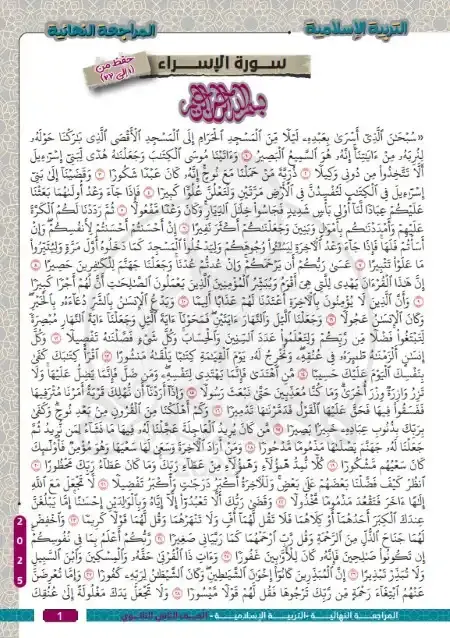 التربية الإسلامية
المراجعة النهائية
سورة الإسراء
حفظ من
(١ إلى ٢٢)
بسم الله الرحمن الرحيم
«سُبْحَٰنَ ٱلَّذِىٓ أَسْرَىٰ بِعَبْدِهِۦ لَيْلًا مِّنَ ٱلْمَسْجِدِ ٱلْحَرَامِ إِلَى ٱلْمَسْجِدِ ٱلْأَقْصَى ٱلَّذِى بَٰرَكْنَا حَوْلَهُۥ
لِنُرِيَهُۥ مِنْ ءَايَٰتِنَآ إِنَّهُۥ هُوَ ٱلسَّمِيعُ ٱلْبَصِيرُ ١ وَءَاتَيْنَا مُوسَى ٱلْكِتَٰبَ وَجَعَلْنَٰهُ هُدًى لِّبَنِىٓ إِسْرَٰٓءِيلَ
أَلَّا تَتَّخِذُوا۟ مِن دُونِى وَكِيلًا ٢ ذُرِّيَّةَ مَنْ حَمَلْنَا مَعَ نُوحٍ إِنَّهُۥ كَانَ عَبْدًا شَكُورًا ٣ وَقَضَيْنَآ إِلَىٰ بَنِىٓ
إِسْرَٰٓءِيلَ فِى ٱلْكِتَٰبِ لَتُفْسِدُنَّ فِى ٱلْأَرْضِ مَرَّتَيْنِ وَلَتَعْلُنَّ عُلُوًّا كَبِيرًا ٤ فَإِذَا جَآءَ وَعْدُ أُولَىٰهُمَا بَعَثْنَا
عَلَيْكُمْ عِبَادًا لَّنَآ أُو۟لِى بَأْسٍ شَدِيدٍ فَجَاسُوا۟ خِلَٰلَ ٱلدِّيَارِ وَكَانَ وَعْدًا مَّفْعُولًا ٥ ثُمَّ رَدَدْنَا لَكُمُ ٱلْكَرَّةَ
عَلَيْهِمْ وَأَمْدَدْنَٰكُم بِأَمْوَٰلٍ وَبَنِينَ وَجَعَلْنَٰكُمْ أَكْثَرَ نَفِيرًا ٦ إِنْ أَحْسَنتُمْ أَحْسَنتُمْ لِأَنفُسِكُمْ وَإِنْ
أَسَأْتُمْ فَلَهَا فَإِذَا جَآءَ وَعْدُ ٱلْءَاخِرَةِ لِيَسُۥٓـُٔوا۟ وُجُوهَكُمْ وَلِيَدْخُلُوا۟ ٱلْمَسْجِدَ كَمَا دَخَلُوهُ أَوَّلَ مَرَّةٍ وَلِيُتَبِّرُوا۟
مَا عَلَوْا۟ تَتْبِيرًا ٧ عَسَىٰ رَبُّكُمْ أَن يَرْحَمَكُمْ وَإِنْ عُدتُّمْ عُدْنَا وَجَعَلْنَا جَهَنَّمَ لِلْكَٰفِرِينَ حَصِيرًا ٨
إِنَّ هَٰذَا ٱلْقُرْءَانَ يَهْدِى لِلَّتِى هِىَ أَقْوَمُ وَيُبَشِّرُ ٱلْمُؤْمِنِينَ ٱلَّذِينَ يَعْمَلُونَ ٱلصَّٰلِحَٰتِ أَنَّ لَهُمْ أَجْرًا كَبِيرًا
٩ وَأَنَّ ٱلَّذِينَ لَا يُؤْمِنُونَ بِٱلْءَاخِرَةِ أَعْتَدْنَا لَهُمْ عَذَابًا أَلِيمًا ١٠ وَيَدْعُ ٱلْإِنسَٰنُ بِٱلشَّرِّ دُعَآءَهُۥ بِٱلْخَيْرِ
وَكَانَ ٱلْإِنسَٰنُ عَجُولًا ١١ وَجَعَلْنَا ٱلَّيْلَ وَٱلنَّهَارَ ءَايَتَيْنِ فَمَحَوْنَآ ءَايَةَ ٱلَّيْلِ وَجَعَلْنَآ ءَايَةَ ٱلنَّهَارِ مُبْصِرَةً
لِّتَبْتَغُوا۟ فَضْلًا مِّن رَّبِّكُمْ وَلِتَعْلَمُوا۟ عَدَدَ ٱلسِّنِينَ وَٱلْحِسَابَ وَكُلَّ شَىْءٍ فَصَّلْنَٰهُ تَفْصِيلًا ١٢ وَكُلَّ
إِنسَٰنٍ أَلْزَمْنَٰهُ طَٰٓئِرَهُۥ فِى عُنُقِهِۦ وَنُخْرِجُ لَهُۥ يَوْمَ ٱلْقِيَٰمَةِ كِتَٰبًا يَلْقَىٰهُ مَنشُورًا ١٣ ٱقْرَأْ كِتَٰبَكَ كَفَىٰ
بِنَفْسِكَ ٱلْيَوْمَ عَلَيْكَ حَسِيبًا ١٤ مَّنِ ٱهْتَدَىٰ فَإِنَّمَا يَهْتَدِى لِنَفْسِهِۦ وَمَن ضَلَّ فَإِنَّمَا يَضِلُّ عَلَيْهَا وَلَا
تَزِرُ وَازِرَةٌ وِزْرَ أُخْرَىٰ وَمَا كُنَّا مُعَذِّبِينَ حَتَّىٰ نَبْعَثَ رَسُولًا ١٥ وَإِذَآ أَرَدْنَآ أَن نُّهْلِكَ قَرْيَةً أَمَرْنَا مُتْرَفِيهَا
فَفَسَقُوا۟ فِيهَا فَحَقَّ عَلَيْهَا ٱلْقَوْلُ فَدَمَّرْنَٰهَا تَدْمِيرًا ١٦ وَكَمْ أَهْلَكْنَا مِنَ ٱلْقُرُونِ مِنۢ بَعْدِ نُوحٍ وَكَفَىٰ
بِرَبِّكَ بِذُنُوبِ عِبَادِهِۦ خَبِيرًۢا بَصِيرًا ١٧ مَّن كَانَ يُرِيدُ ٱلْعَاجِلَةَ عَجَّلْنَا لَهُۥ فِيهَا مَا نَشَآءُ لِمَن نُّرِيدُ ثُمَّ
جَعَلْنَا لَهُۥ جَهَنَّمَ يَصْلَىٰهَا مَذْمُومًا مَّدْحُورًا ١٨ وَمَنْ أَرَادَ ٱلْءَاخِرَةَ وَسَعَىٰ لَهَا سَعْيَهَا وَهُوَ مُؤْمِنٌ فَأُو۟لَٰٓئِكَ
كَانَ سَعْيُهُم مَّشْكُورًا ١٩ كُلًّا نُّمِدُّ هَٰٓؤُلَآءِ وَهَٰٓؤُلَآءِ مِنْ عَطَآءِ رَبِّكَ وَمَا كَانَ عَطَآءُ رَبِّكَ مَحْظُورًا ٢٠
ٱنظُرْ كَيْفَ فَضَّلْنَا بَعْضَهُمْ عَلَىٰ بَعْضٍ وَلَلْءَاخِرَةُ أَكْبَرُ دَرَجَٰتٍ وَأَكْبَرُ تَفْضِيلًا ٢١ لَّا تَجْعَلْ مَعَ ٱللَّهِ
إِلَٰهًا ءَاخَرَ فَتَقْعُدَ مَذْمُومًا مَّخْذُولًا ٢٢ وَقَضَىٰ رَبُّكَ أَلَّا تَعْبُدُوٓا۟ إِلَّآ إِيَّاهُ وَبِٱلْوَٰلِدَيْنِ إِحْسَٰنًا إِمَّا يَبْلُغَنَّ
عِندَكَ ٱلْكِبَرَ أَحَدُهُمَآ أَوْ كِلَاهُمَا فَلَا تَقُل لَّهُمَآ أُفٍّ وَلَا تَنْهَرْهُمَا وَقُل لَّهُمَا قَوْلًا كَرِيمًا ٢٣ وَٱخْفِضْ
لَهُمَا جَنَاحَ ٱلذُّلِّ مِنَ ٱلرَّحْمَةِ وَقُل رَّبِّ ٱرْحَمْهُمَا كَمَا رَبَّيَانِى صَغِيرًا ٢٤ رَّبُّكُمْ أَعْلَمُ بِمَا فِى نُفُوسِكُمْ
إِن تَكُونُوا۟ صَٰلِحِينَ فَإِنَّهُۥ كَانَ لِلْأَوَّٰبِينَ غَفُورًا ٢٥ وَءَاتِ ذَا ٱلْقُرْبَىٰ حَقَّهُۥ وَٱلْمِسْكِينَ وَٱبْنَ ٱلسَّبِيلِ
وَلَا تُبَذِّرْ تَبْذِيرًا ٢٦ إِنَّ ٱلْمُبَذِّرِينَ كَانُوٓا۟ إِخْوَٰنَ ٱلشَّيَٰطِينِ وَكَانَ ٱلشَّيْطَٰنُ لِرَبِّهِۦ كَفُورًا ٢٧ وَإِمَّا تُعْرِضَنَّ
عَنْهُمُ ٱبْتِغَآءَ رَحْمَةٍ مِّن رَّبِّكَ تَرْجُوهَا فَقُل لَّهُمْ قَوْلًا مَّيْسُورًا ٢٨ وَلَا تَجْعَلْ يَدَكَ مَغْلُولَةً إِلَىٰ عُنُقِكَ
2025
المراجعة النهائية - التربية الإسلامية - الصف الثاني الثانوي
1